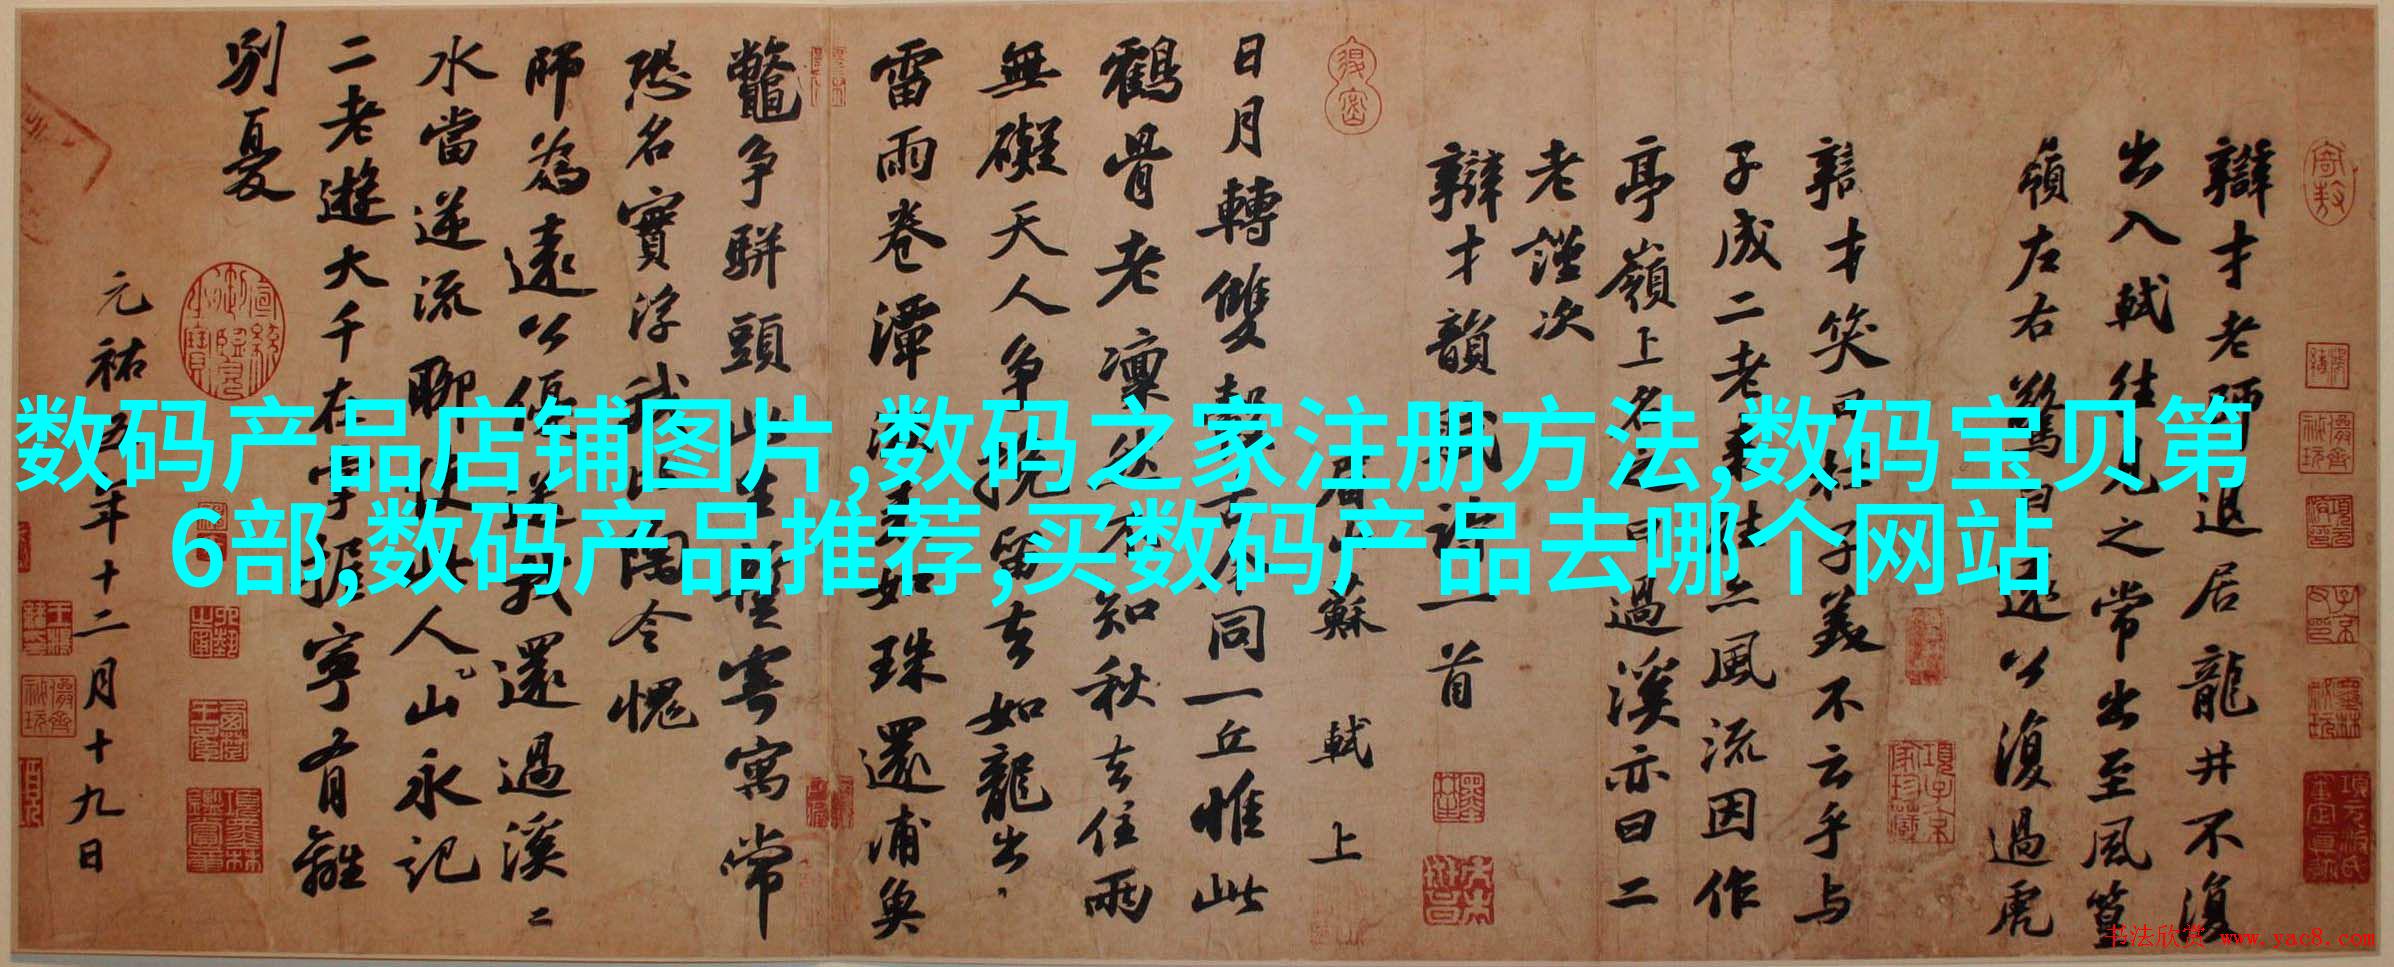 辯才老師退居龍井不復
出入軾往見之常出至風篁
嶺左右驚曰遠公復過虎
辯才笑曰杜子美不云乎与
子成二老來往亦風流因作
亭嶺上名之曰過溪亦曰二
老謹次
辯才韻賦詩一首
眉山蘇軾上
日月轉雙轂古今同一丘惟此
鶴骨老凜然不知秋去住兩
無礙天人争挽留去如龍出
雷雨卷潭湫來如珠還浦魚
鼈争駢頭此生暫寄寓常
恐名實浮我比陶令愧
師為遠公優送我還過溪二
水當逆流聊使此人山永記
二老遊大千在掌握寧有離
别憂
元祐五年十二月十九日
数码产品店铺图片,数码之家注册方法,数码宝贝第
6部,数码产品推荐,买数码产品去哪个网站
书法欣赏 www.yac8.com